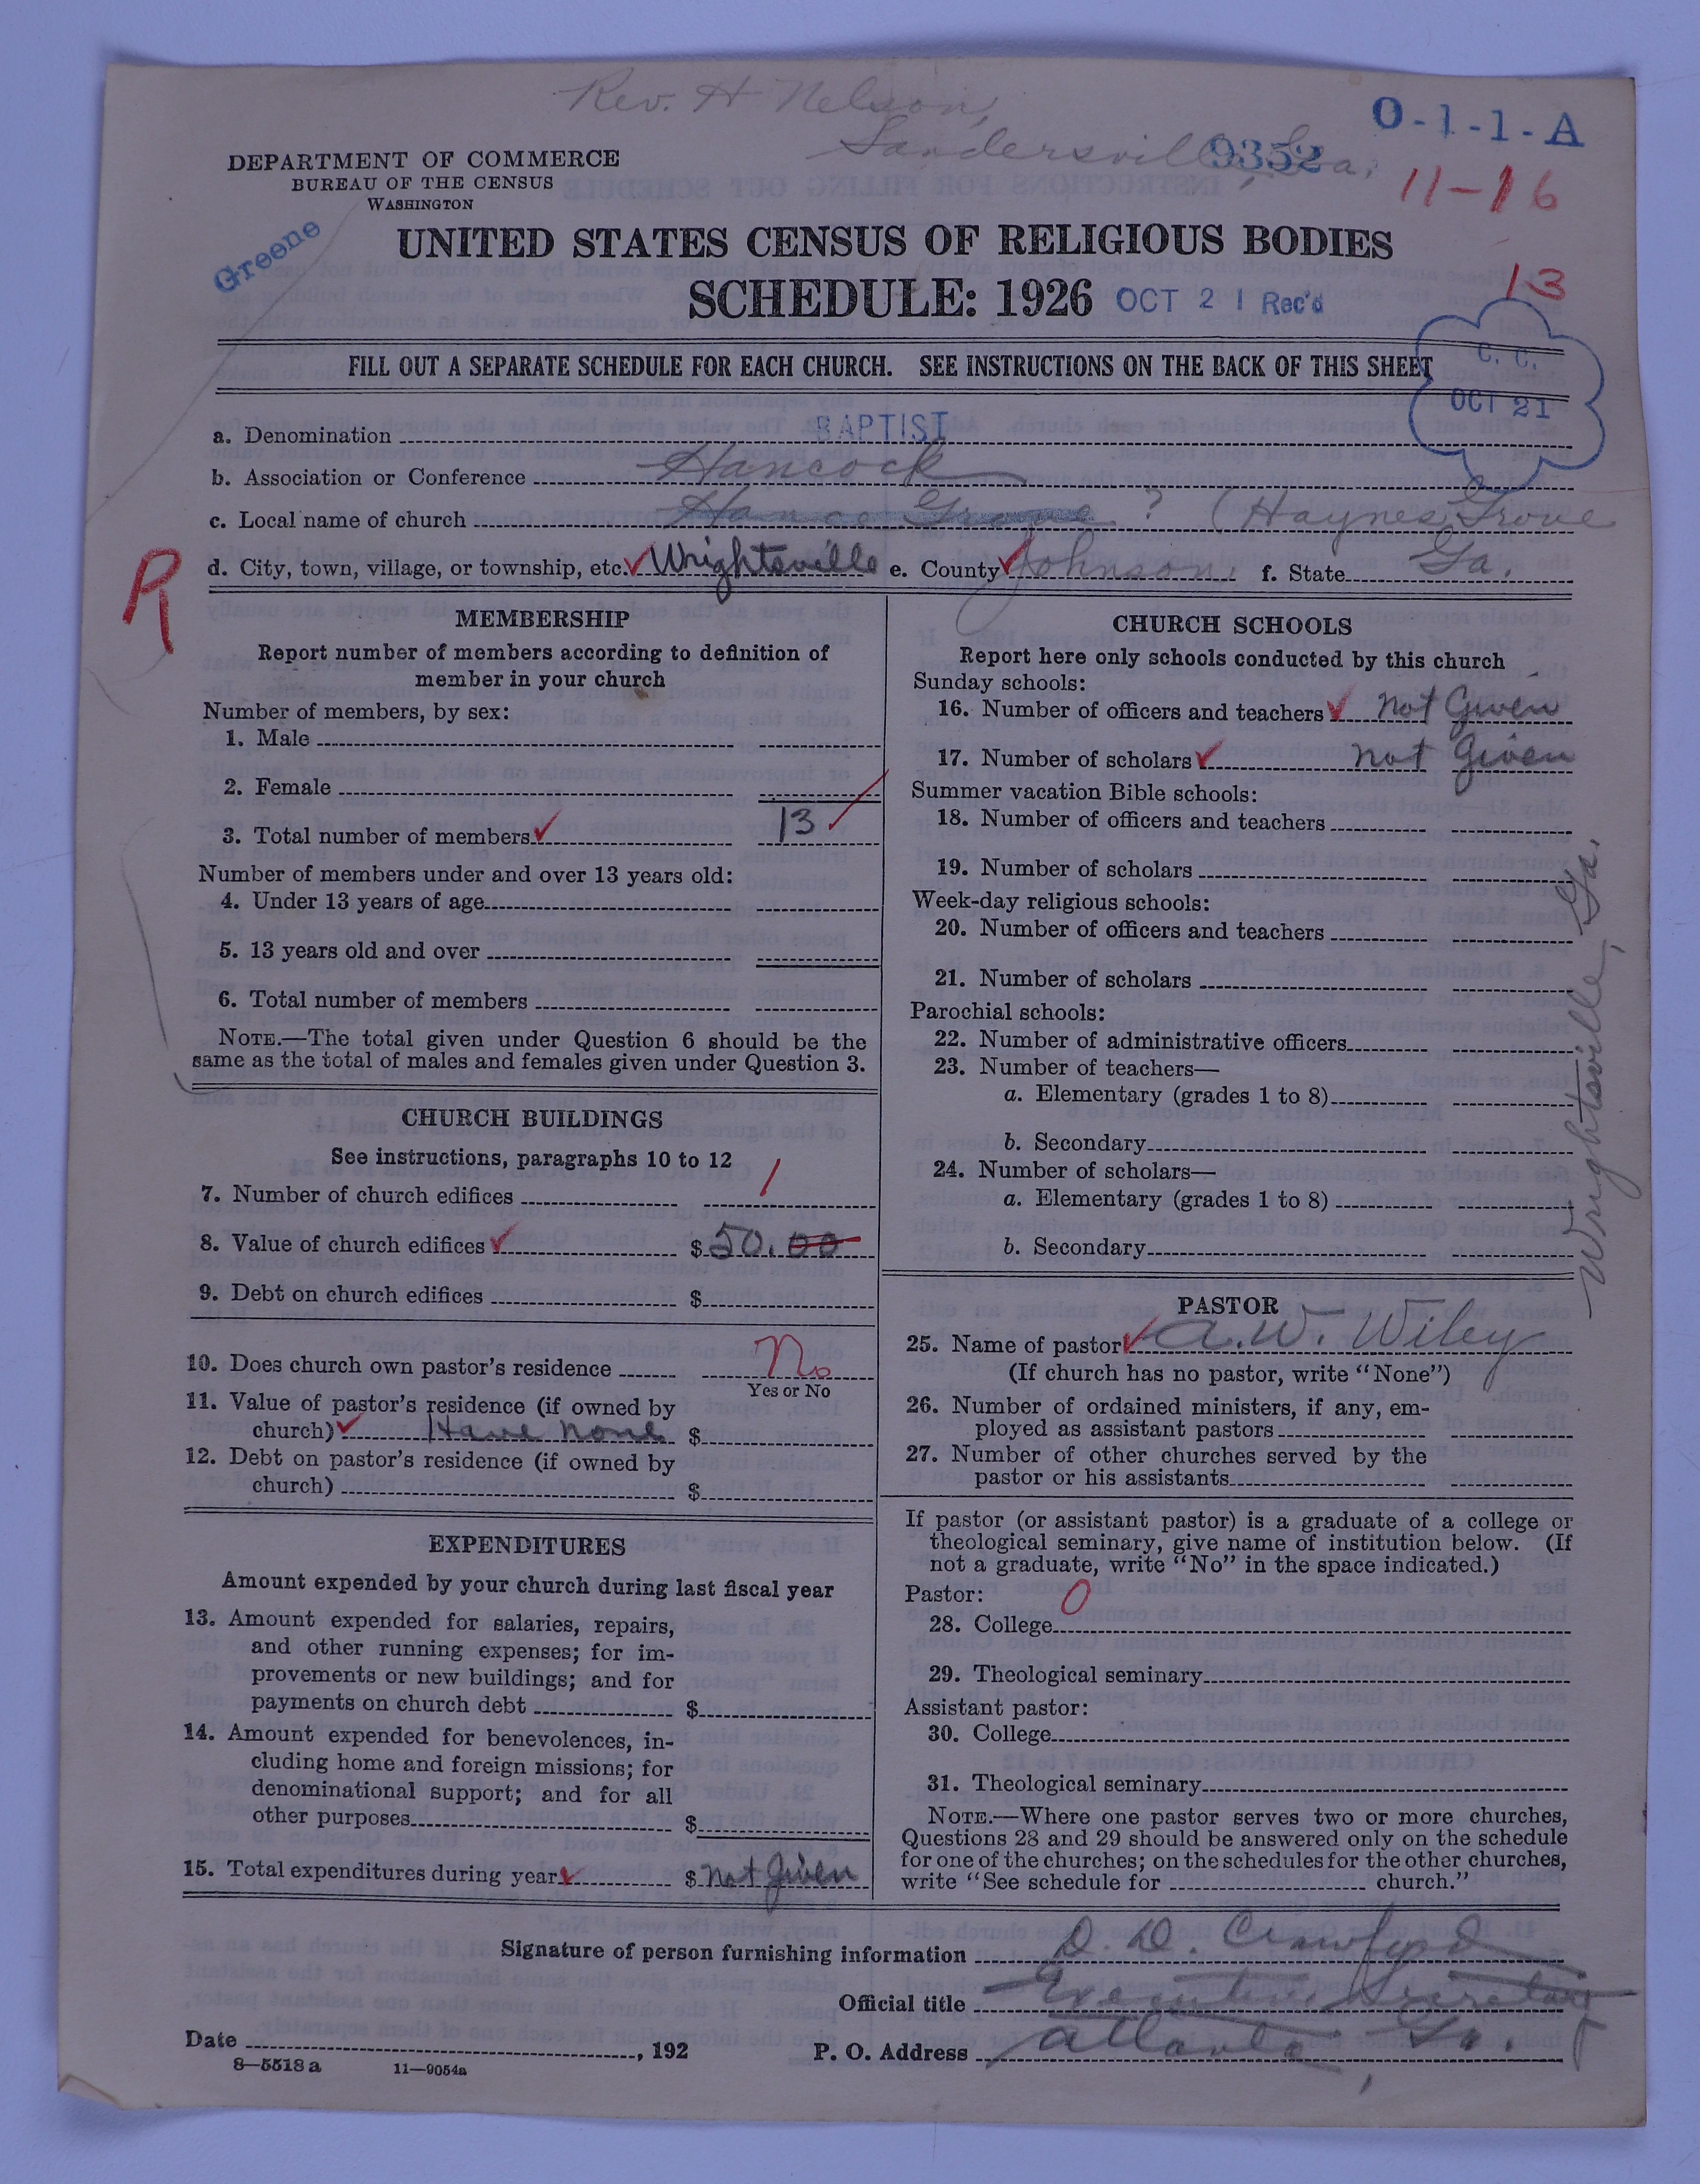 Rev. H Nelson,
Sandersville, Ga.
9352
O-1-1-A
11-16
13
DEPARTMENT OF COMMERCE
BUREAU OF THE CENSUS
WASHINGTON
Greene
UNITED STATES CENSUS OF RELIGIOUS BODIES
SCHEDULE: 1926 OCT 21 Rec'd
FILL OUT A SEPARATE SCHEDULE FOR EACH CHURCH. SEE INSTRUCTIONS ON THE BACK OF THIS SHEET
C. C.
OCT 21
a. Denomination BAPTIST
b. Association or Conference Hancock
c. Local name of church Hance Grove ? (Haynes Grove
R
d. City, town, village, or township, etc. Wrightsville e. County Johnson. f. State Ga.
MEMBERSHIP
Report number of members according to definition of
member in your church
Number of members, by sex:
1. Male
2. Female
3. Total number of members 13
Number of members under and over 13 years old:
4. Under 13 years of age
5. 13 years old and over
6. Total number of members
NOTE.—The total given under Question 6 should be the
same as the total of males and females given under Question 3.
CHURCH BUILDINGS
See instructions, paragraphs 10 to 12
7. Number of church edifices 1
8. Value of church edifices $50.00
9. Debt on church edifices $
10. Does church own pastor's residence No
Yes or No
11. Value of pastor's residence (if owned by
church) Have none $
12. Debt on pastor's residence (if owned by
church) $
EXPENDITURES
Amount expended by your church during last fiscal year
13. Amount expended for salaries, repairs,
and other running expenses; for im-
provements or new buildings; and for
payments on church debt $
14. Amount expended for benevolences, in-
cluding home and foreign missions; for
denominational support; and for all
other purposes $
15. Total expenditures during year $ not given
CHURCH SCHOOLS
Report here only schools conducted by this church
Sunday schools:
16. Number of officers and teachers not Given
17. Number of scholars not Given
Summer vacation Bible schools:
18. Number of officers and teachers
19. Number of scholars
Week-day religious schools:
20. Number of officers and teachers
21. Number of scholars
Parochial schools:
22. Number of administrative officers
23. Number of teachers—
a. Elementary (grades 1 to 8)
b. Secondary
24. Number of scholars—
a. Elementary (grades 1 to 8)
b. Secondary
Wrightsville, Ga.
PASTOR
25. Name of pastor A. W. Wiley
(If church has no pastor, write "None")
26. Number of ordained ministers, if any, em-
ployed as assistant pastors
27. Number of other churches served by the
pastor or his assistants
If pastor (or assistant pastor) is a graduate of a college or
theological seminary, give name of institution below. (If
not a graduate, write "No" in the space indicated.)
Pastor: 0
28. College
29. Theological seminary
Assistant pastor:
30. College
31. Theological seminary
NOTE.—Where one pastor serves two or more churches,
Questions 28 and 29 should be answered only on the schedule
for one of the churches; on the schedules for the other churches,
write "See schedule for church."
Signature of person furnishing information D. D. Crawford
Official title Executive Secretary
Date , 192 P. O. Address Atlanta, Ga.
8—5518 a 11—9054a